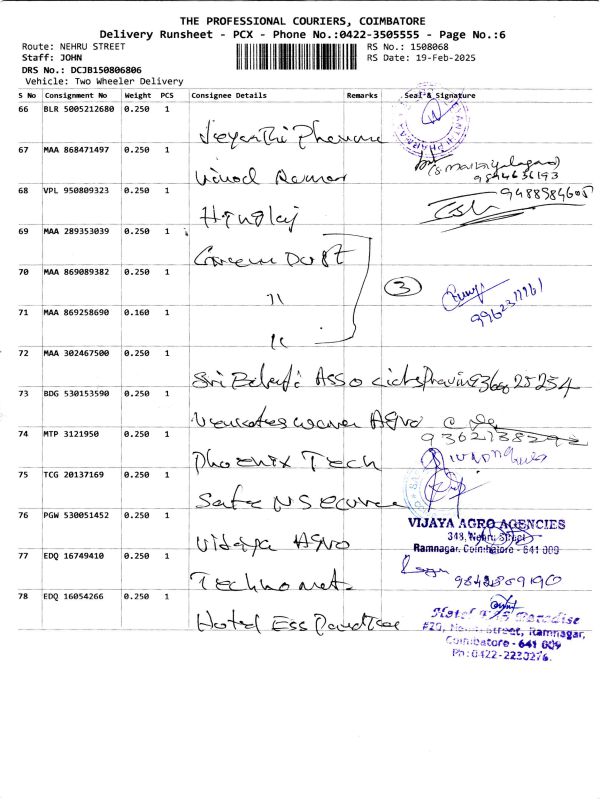 THE PROFESSIONAL COURIERS, COIMBATORE
Delivery Runsheet - PCX - Phone No.:0422-3505555 - Page No.:6
Route: NEHRU STREET
RS No.: 1508068
Staff: JOHN
RS Date: 19-Feb-2025
DRS No.: DCJB150806806
Vehicle: Two Wheeler Delivery
S No Consignment No Weight PCS Consignee Details Remarks Seal & Signature
66 BLR 5005212680 0.250 1
Jeyanthi Pharma
67 MAA 868471497 0.250 1
Vinod Kumar
9844636193
68 VPL 950809323 0.250 1
9488984605
Hinglaj
69 MAA 289353039 0.250 1
Green Dust
70 MAA 869089382 0.250 1
3
"
71 MAA 869258690 0.160 1
"
72 MAA 302467500 0.250 1
Sri Balaji Asso
73 BDG 530153590 0.250 1
Venkateswara Agro
74 MTP 3121950 0.250 1
Phoenix Tech
75 TCG 20137169 0.250 1
Safe N Secure
76 PGW 530051452 0.250 1
VIJAYA AGRO AGENCIES
348, Nehru Street
Ramnagar, Coimbatore - 641 009
Vijaya Agro
77 EDQ 16749410 0.250 1
9842809190
Technomet
78 EDQ 16054266 0.250 1
Hotel Ess Paradise
#20, Nehru Street, Ramnagar,
Coimbatore - 641 009
Ph: 0422-2230276.